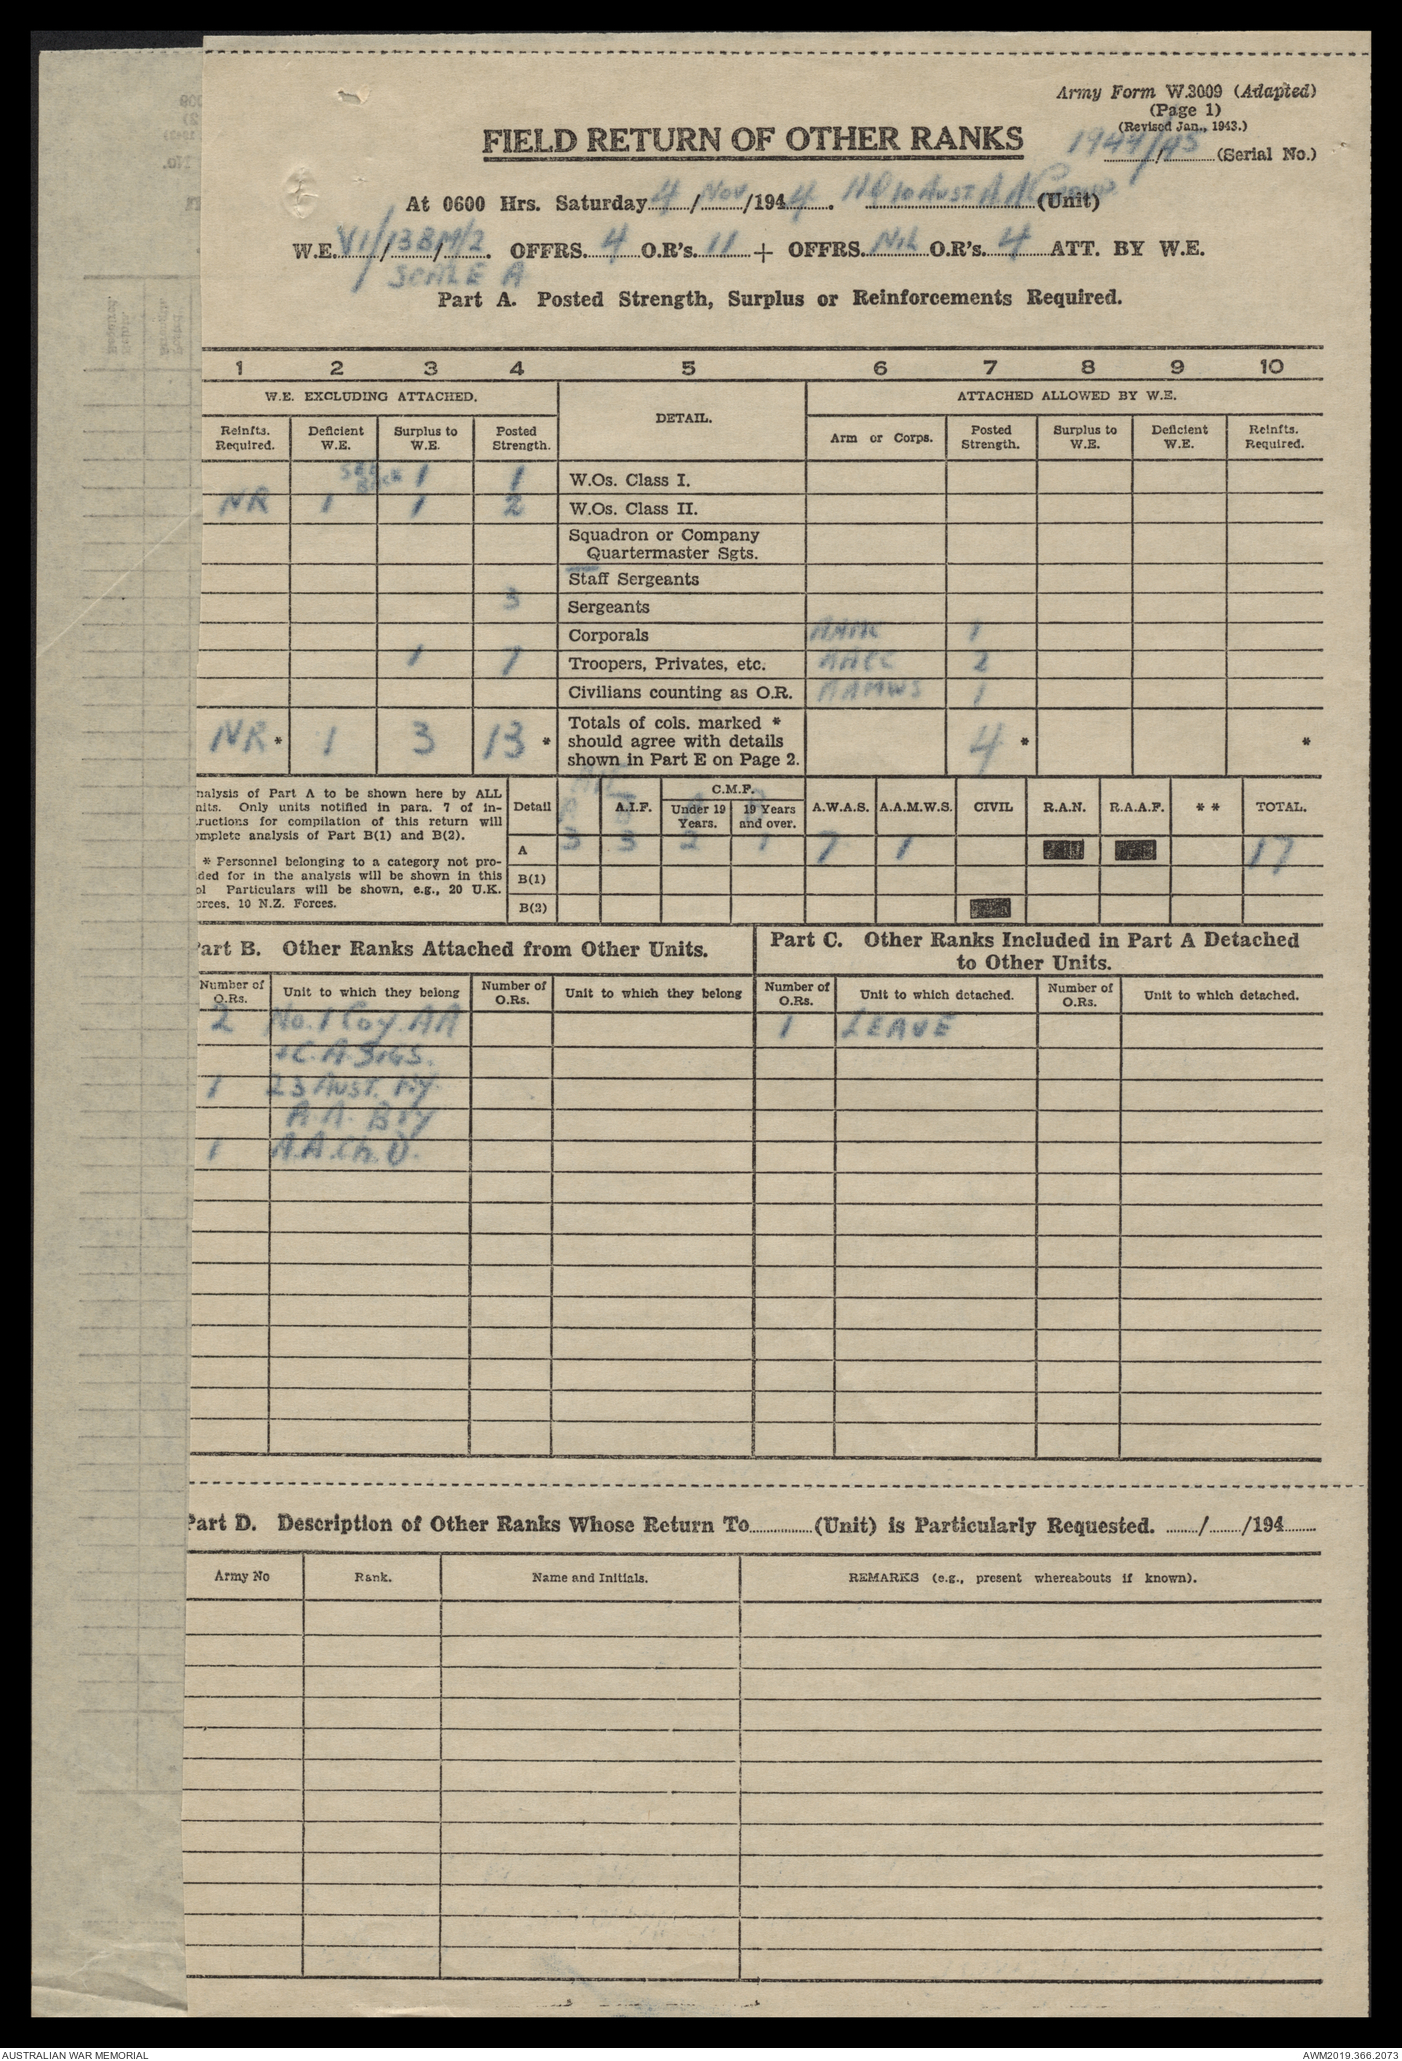 Army Form W.3009 (Adapted)
(Page 1)
(Revised Jan., 1943.)
FIELD RETURN OF OTHER RANKS
1944/45 (Serial No.)
At 0600 Hrs. Saturday 4/Nov/1944. HQ 10 Aust AA (Unit)
W.E. VI/13BM/2. OFFRS. 4 O.R's. 11 + OFFRS. Nil O.R's. 4 ATT. BY W.E.
SCALE A
Part A. Posted Strength, Surplus or Reinforcements Required.
1 2 3 4 5 6 7 8 9 10
W.E. EXCLUDING ATTACHED. DETAIL. ATTACHED ALLOWED BY W.E.
Reinfts. Required. Deficient W.E. Surplus to W.E. Posted Strength. Arm or Corps. Posted Strength. Surplus to W.E. Deficient W.E. Reinfts. Required.
See Back 1 1 W.Os. Class I.
NR 1 1 2 W.Os. Class II.
Squadron or Company
Quartermaster Sgts.
Staff Sergeants
3 Sergeants
Corporals 1
1 7 Troopers, Privates, etc. AACC 2
Civilians counting as O.R. AAMWS 1
NR * 1 3 13 * Totals of cols. marked * 4 * *
should agree with details
shown in Part E on Page 2.
nalysis of Part A to be shown here by ALL
nits. Only units notified in para. 7 of in-
ructions for compilation of this return will
omplete analysis of Part B(1) and B(2).
* Personnel belonging to a category not pro-
ded for in the analysis will be shown in this
ol Particulars will be shown, e.g., 20 U.K.
orces. 10 N.Z. Forces.
Detail A.I.F. C.M.F. Under 19 Years. 19 Years and over. A.W.A.S. A.A.M.W.S. CIVIL R.A.N. R.A.A.F. * * TOTAL.
A 3 3 2 1 7 1 17
B(1)
B(2)
art B. Other Ranks Attached from Other Units.
Part C. Other Ranks Included in Part A Detached
to Other Units.
Number of O.Rs. Unit to which they belong Number of O.Rs. Unit to which they belong Number of O.Rs. Unit to which detached. Number of O.Rs. Unit to which detached.
2 No. 1 Coy. AA 1 LEAVE
+ C.A. Sigs.
1 23 Aust. Hy.
A.A. Bty
1 A.A.Ch.D.
Part D. Description of Other Ranks Whose Return To (Unit) is Particularly Requested. / /194
Army No Rank. Name and Initials. REMARKS (e.g., present whereabouts if known).
AUSTRALIAN WAR MEMORIAL
AWM2019.366.2073